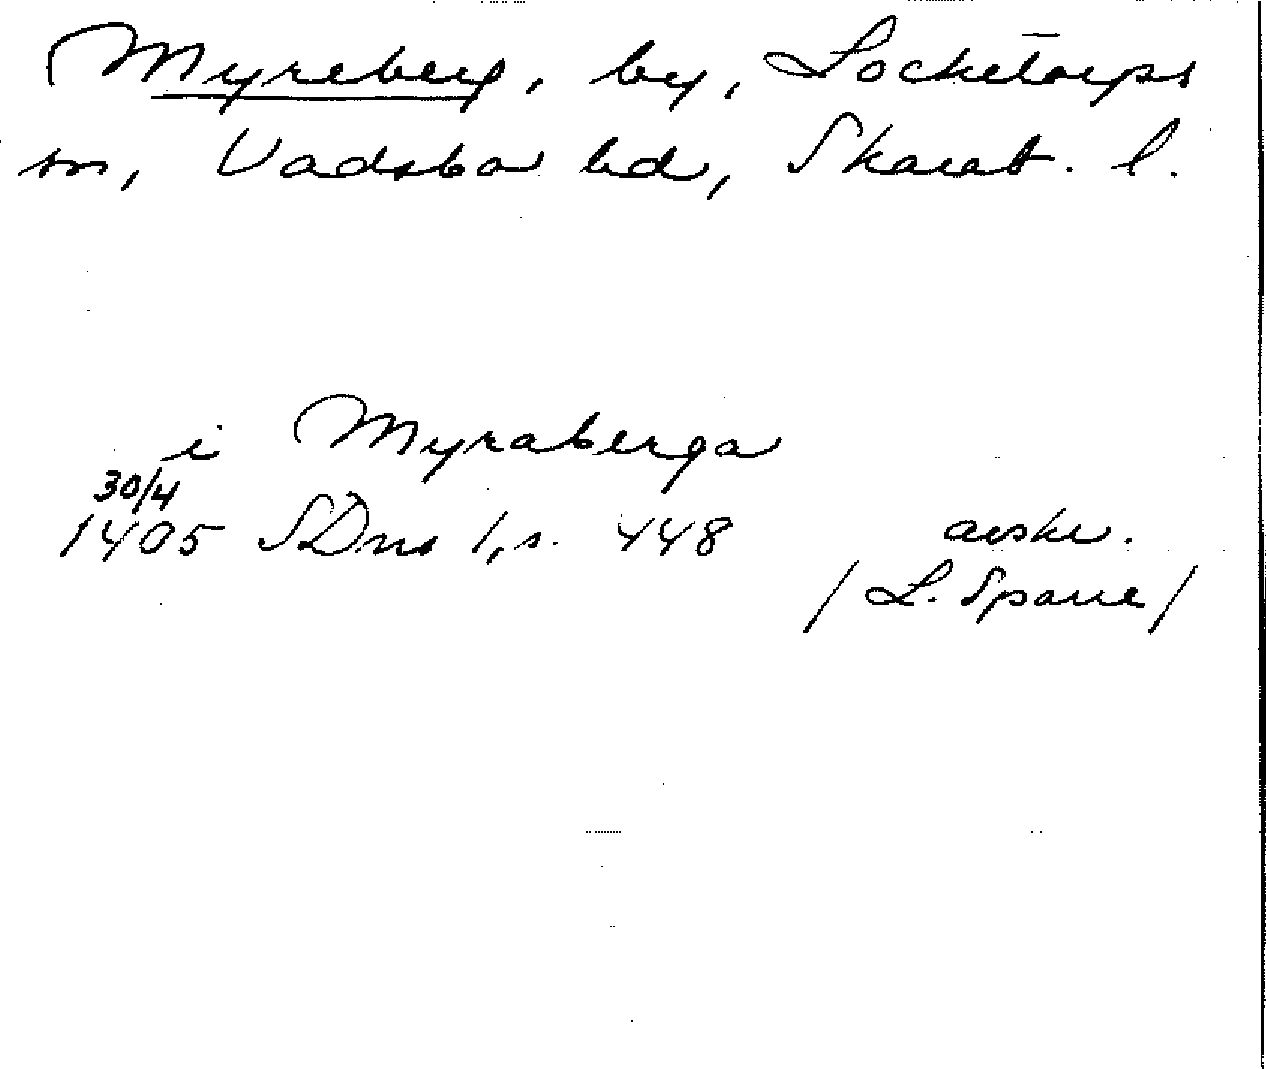 Myreberg, by, Locketorps
sn, Vadsbo hd, Skarab. l.
i Myraberga
30/4
1405 SDns 1, s. 448 avskr.
/ L. Sparre /